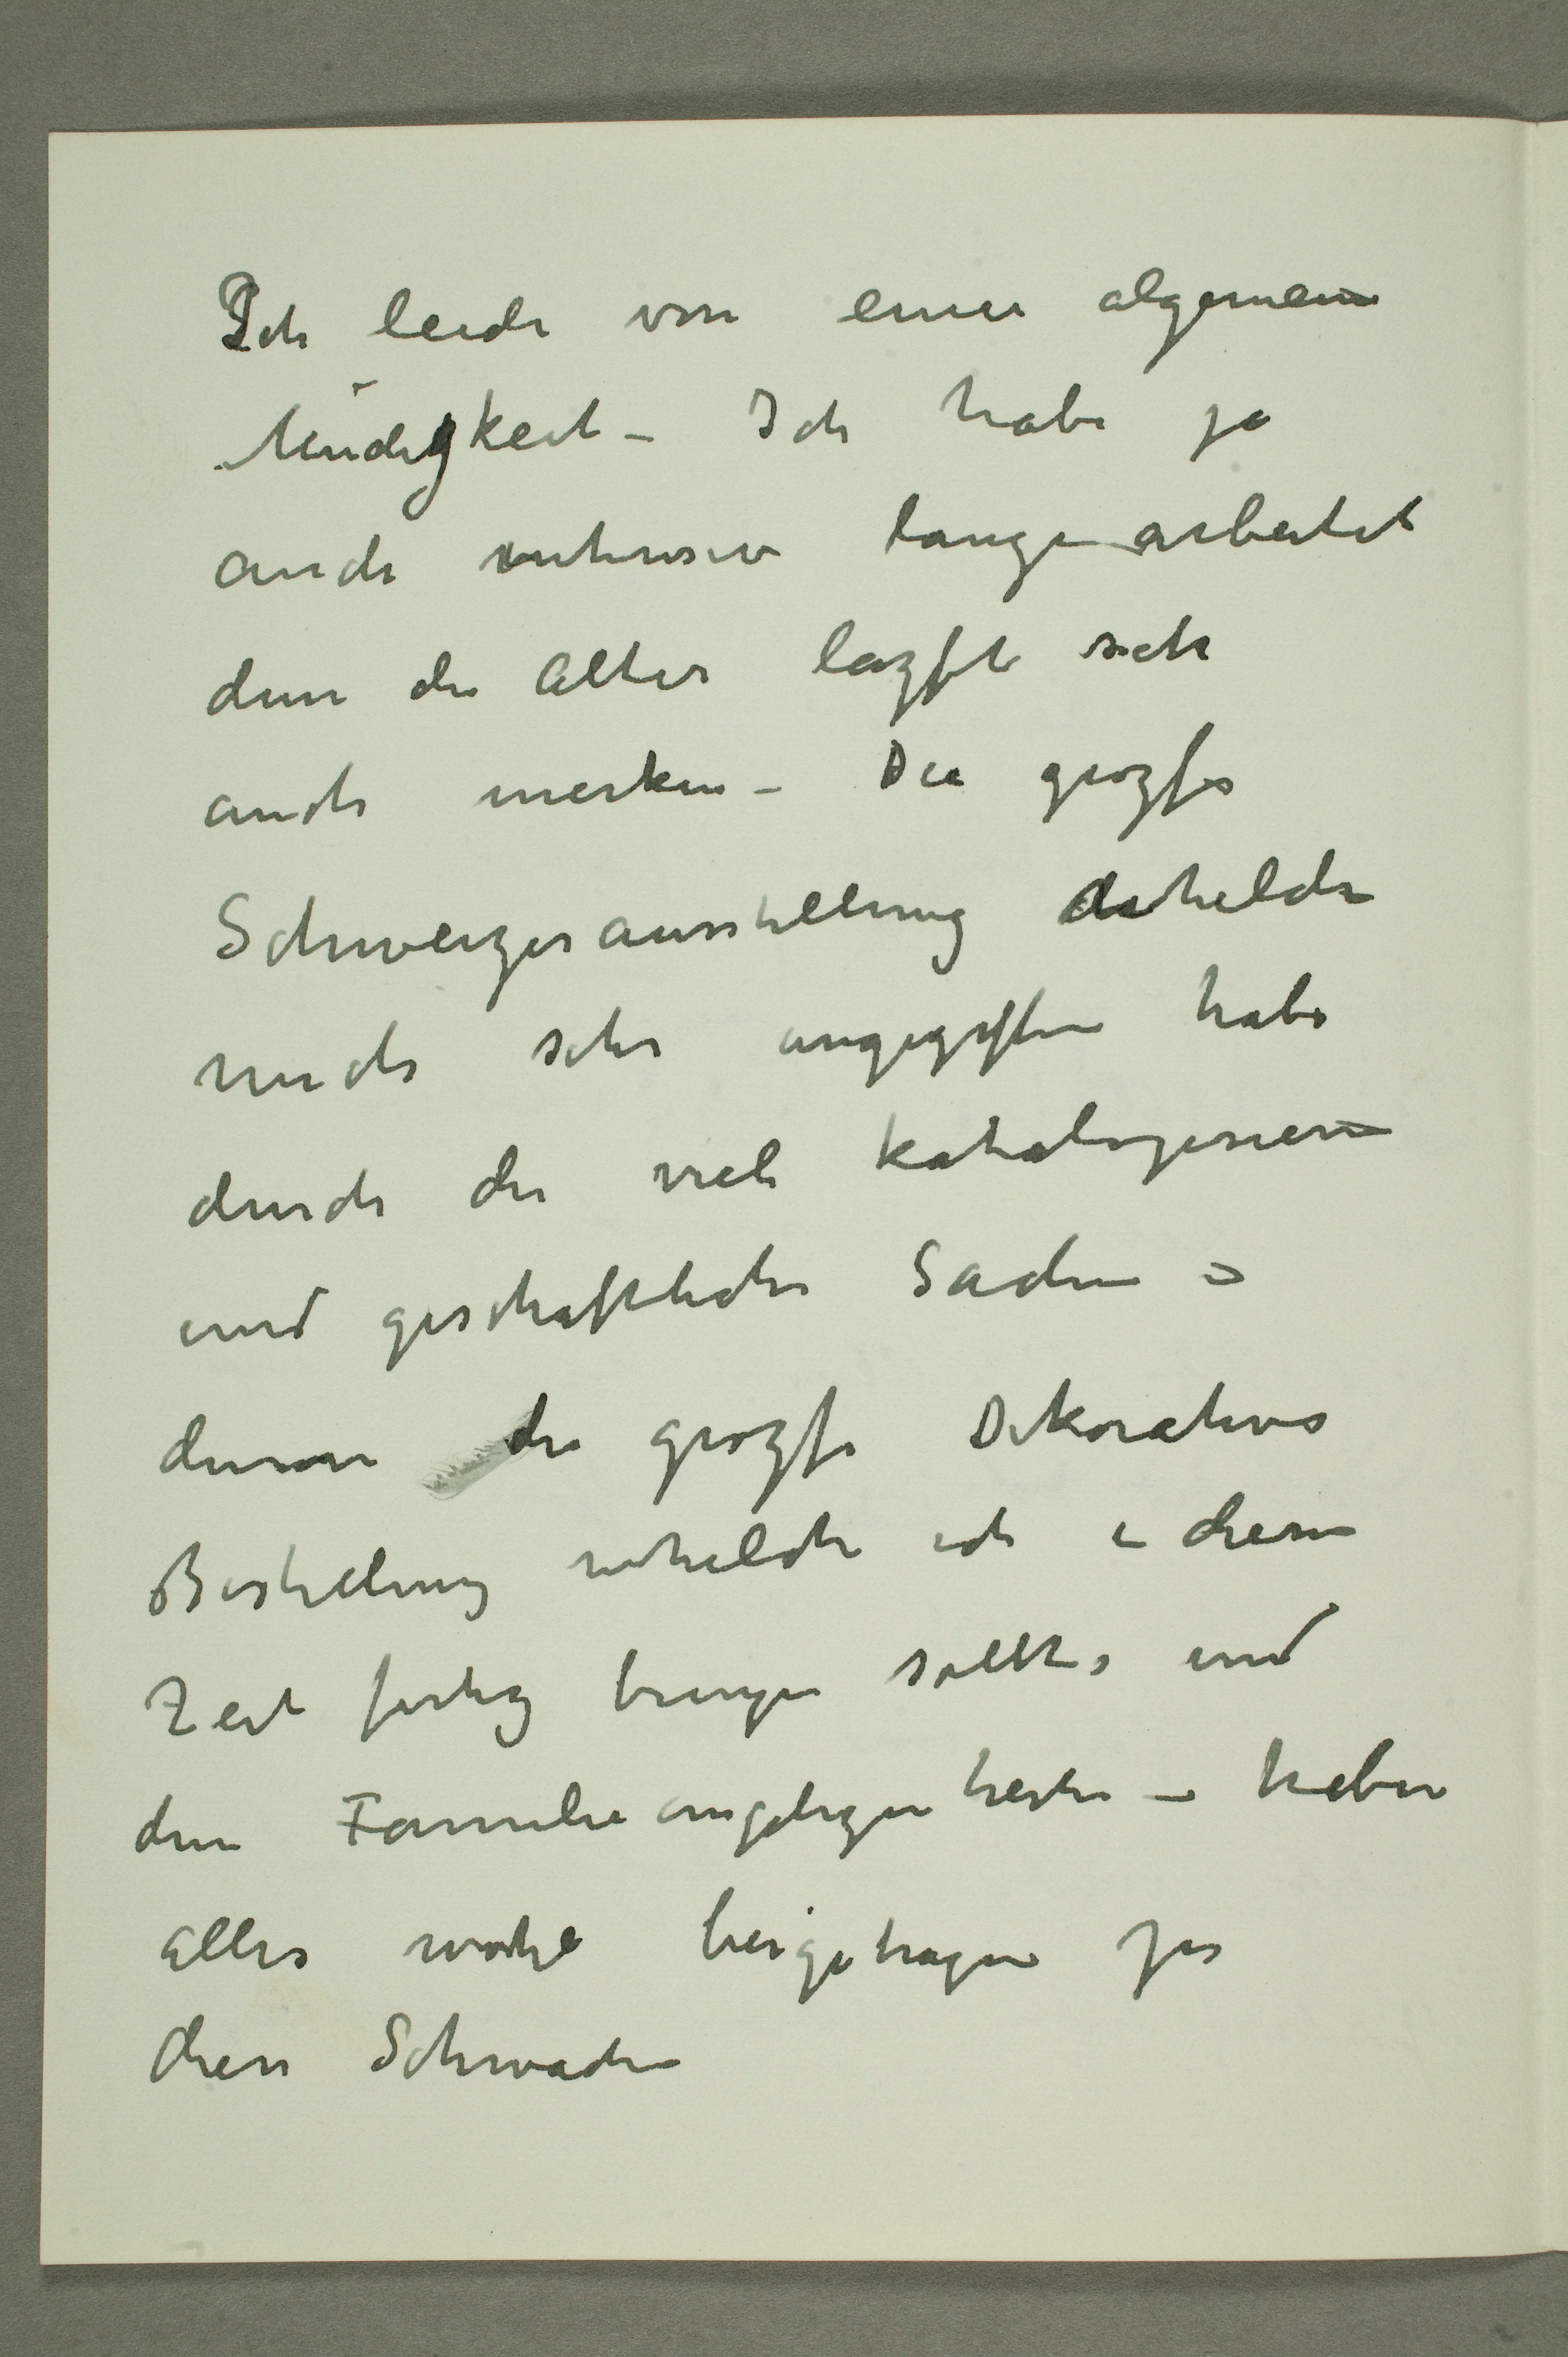 Ich leide von einer algemeinen
Müdigkeit – Ich habe ja
auch intensiv lange arbeitet
dem die Alter lazft sich
auch merken – Die grozfe
Schweizerausstellung
mich sehr angegriffen habe
durch die viele katalogisieren
und geschäftliche Sachen –
die grozfe Dekorative
Bestellung welche ich in diesen
Zeit fertig bringen sollte, und
den Familieangelegenheiten – haben
alles wohl beigetragen zur
diese Schwäche